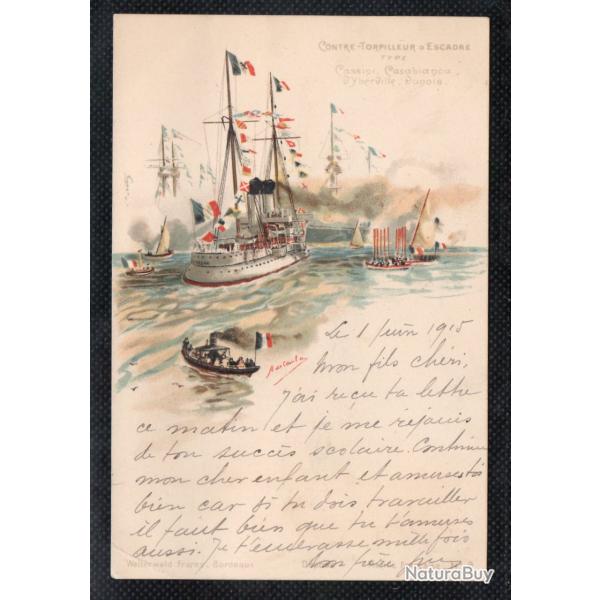 CONTRE-TORPILLEUR D'ESCADRE
TYPE
Cassini, Casabianca,
D'Yberville, Dunois.
Le 1 Juin 1915
Mon fils chéri,
J'ai reçu ta lettre
ce matin et je me réjouis
de ton succès scolaire. Continue
mon cher enfant et amuses toi
bien car si tu dois travailler
il faut bien que tu t'amuses
aussi. Je t'embrasse mille fois
ton père
Weiterwald Frères, Bordeaux
NaturaBuy